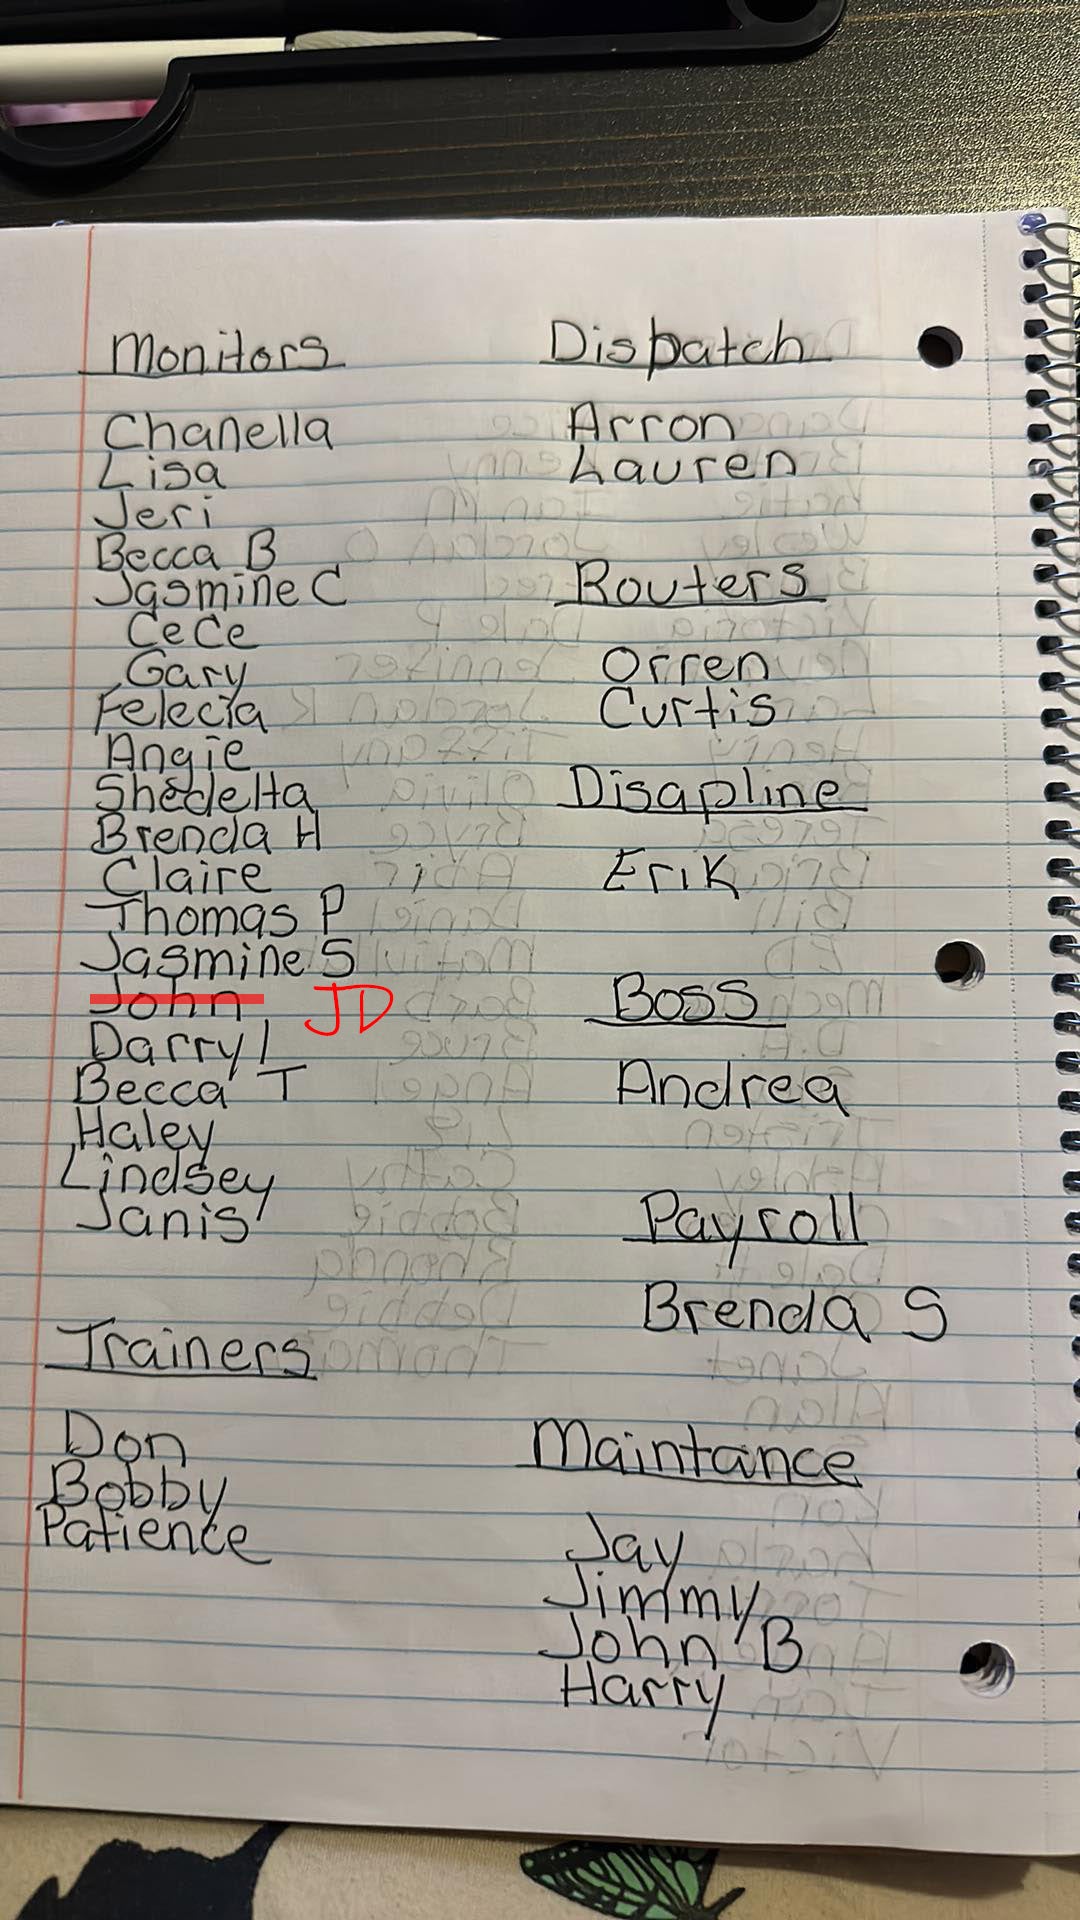 Monitors
Chanella
Lisa
Jeri
Becca B
Jasmine C
CeCe
Gary
Felecia
Angie
Shedelta
Brenda H
Claire
Thomas P
Jasmine S
John JD
Darryl
Becca T
Haley
Lindsey
Janis
Trainers
Don
Bobby
Patience
Dispatch
Arron
Lauren
Routers
Orren
Curtis
Disapline
Erik
Boss
Andrea
Payroll
Brenda S
Maintance
Jay
Jimmy
John B
Harry